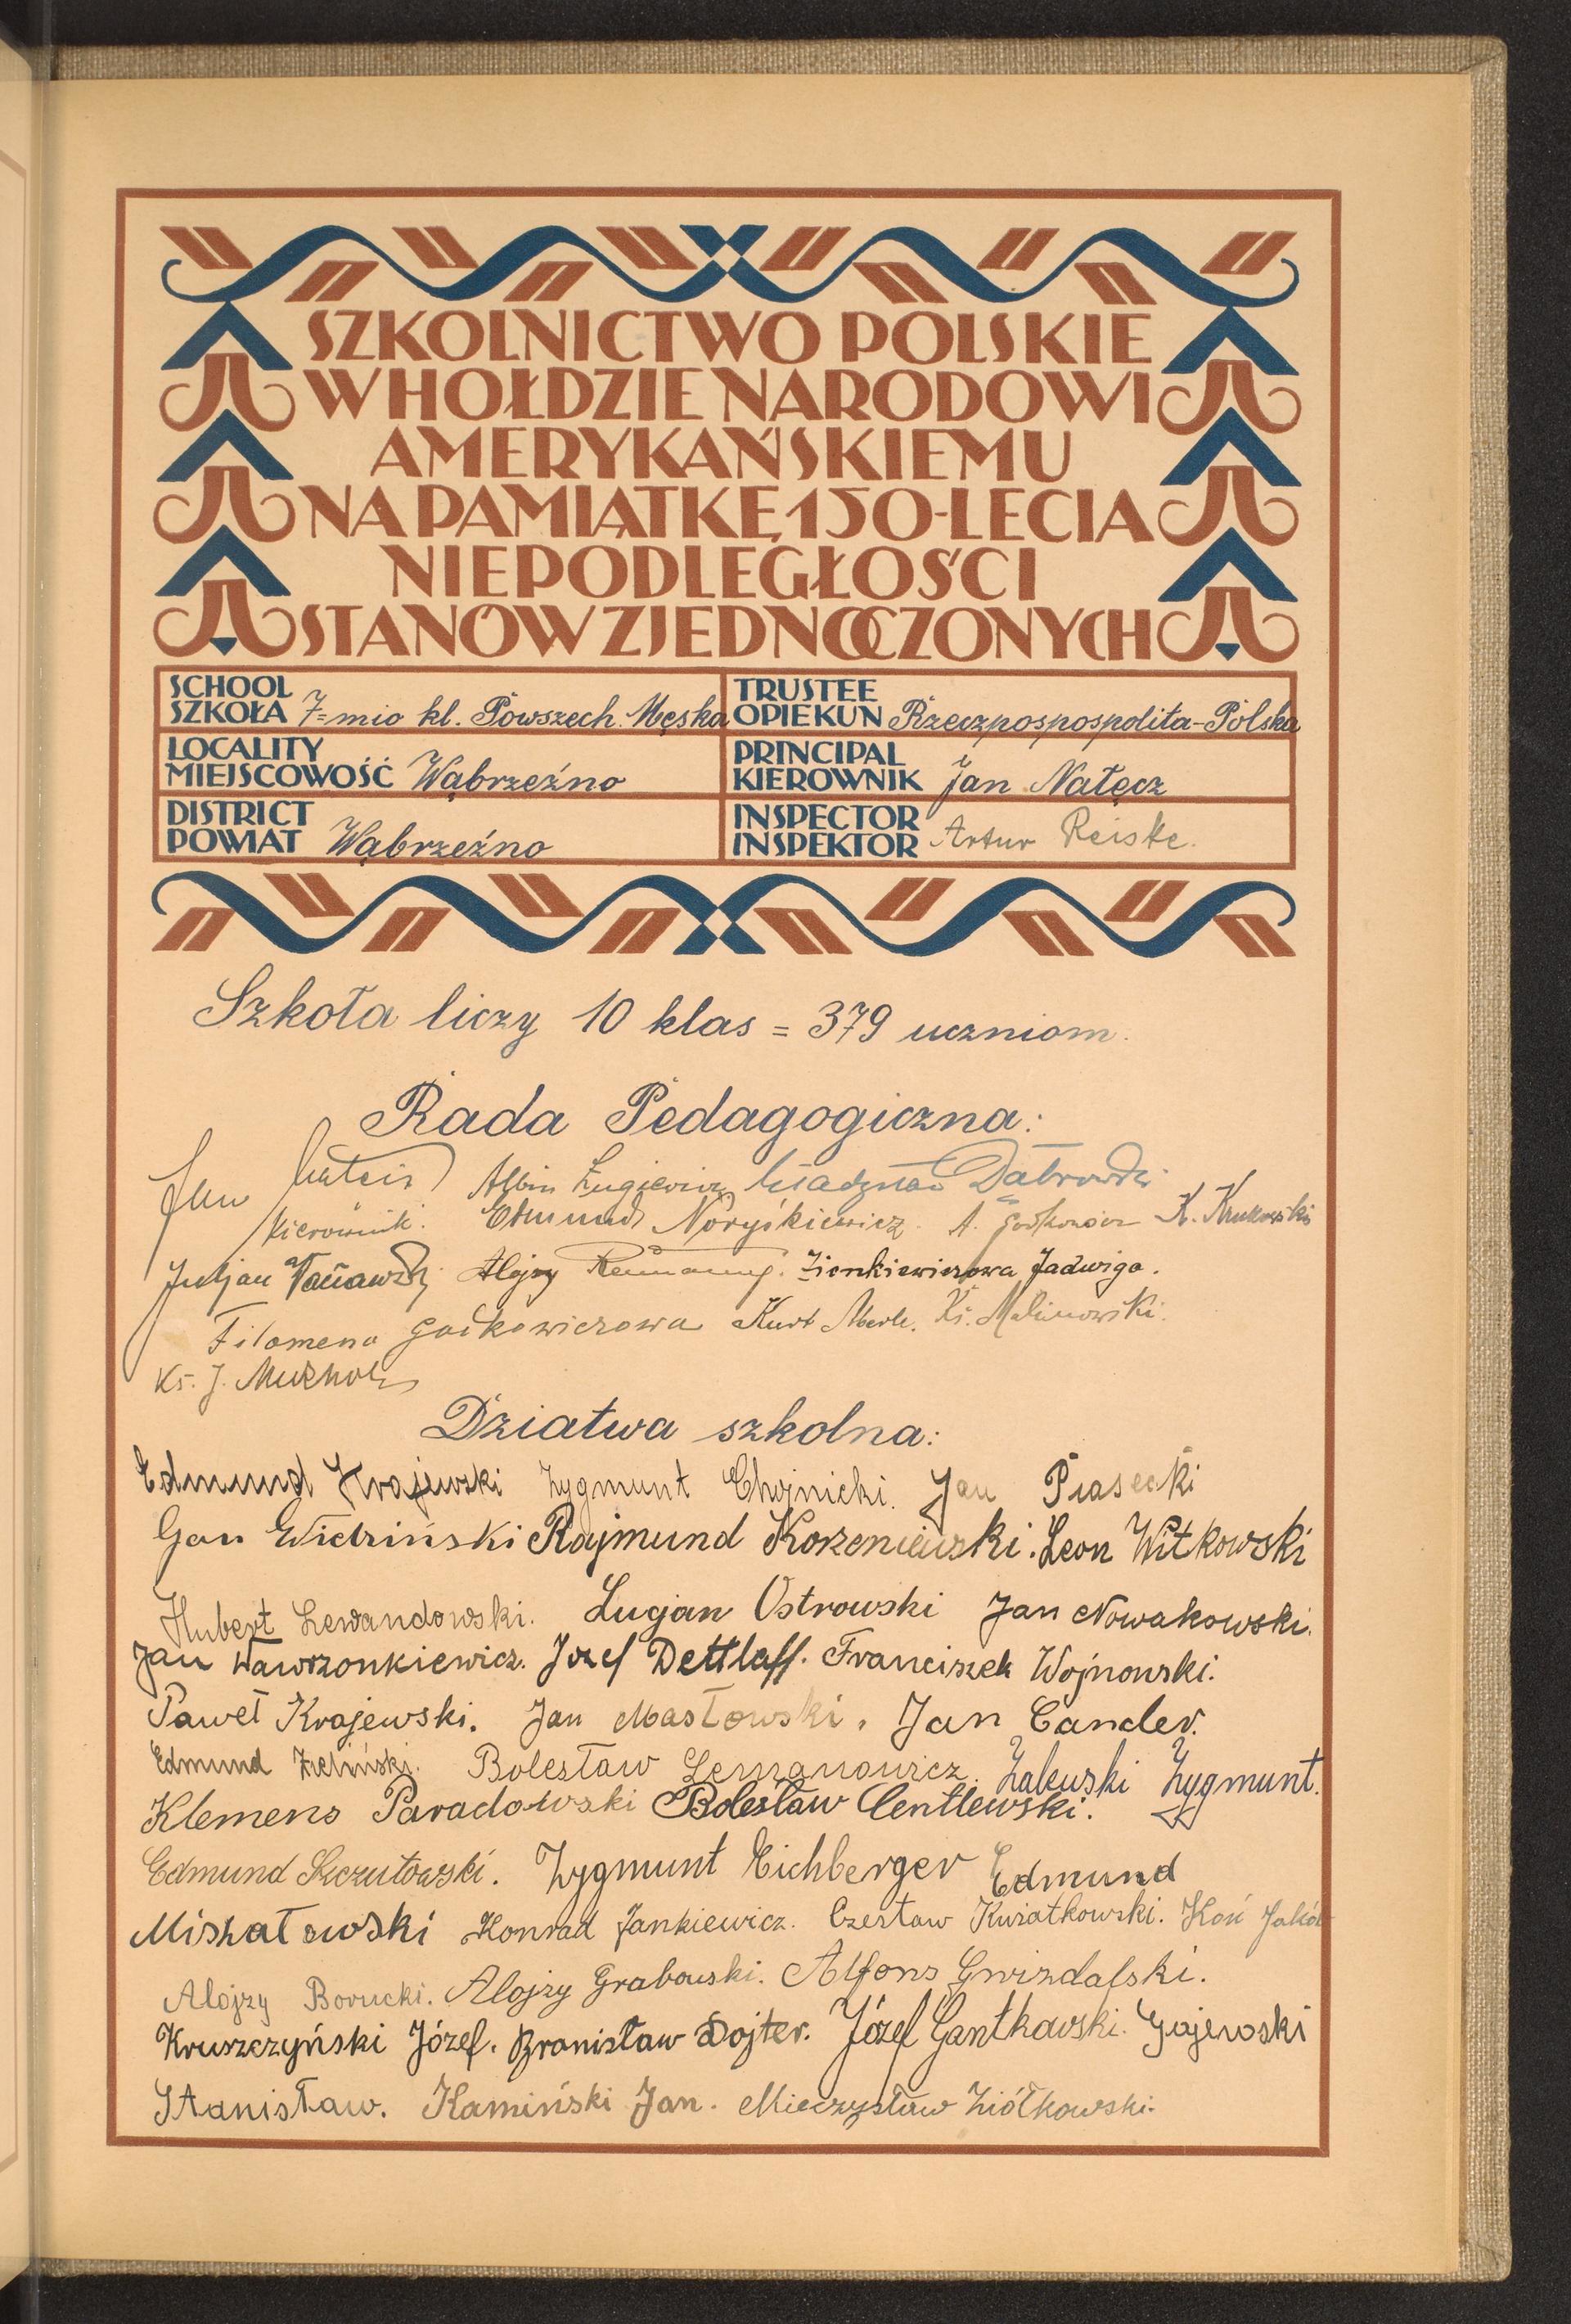 SZKOLNICTWO POLSKIE
W HOŁDZIE NARODOWI
AMERYKAŃSKIEMU
NA PAMIĄTKĘ 150-LECIA
NIEPODLEGŁOŚCI
STANÓW ZJEDNOCZONYCH
SCHOOL
SZKOŁA 7=mio kl. Powszech. Męska
TRUSTEE
OPIEKUN Rzeczpospospolita-Polska
LOCALITY
MIEJSCOWOŚĆ Wąbrzeźno
PRINCIPAL
KIEROWNIK Jan Nałęcz
DISTRICT
POWIAT Wąbrzeźno
INSPECTOR
INSPEKTOR Artur Reiske.
Szkoła liczy 10 klas = 379 uczniom.
Rada Pedagogiczna:
Jan Albin Ługiewicz Władysław Dąbrowski
kierownik. Edmund Noryśkiewicz. A. K. Krukowski
Juljan Alojzy Zienkiewiczowa Jadwiga.
Filomena Gockowiczowa Kurt Merle. Ks. Malinowski.
Ks. J.
Dziatwa szkolna:
Edmund Krajewski Zygmunt Chojnicki. Jan Piasecki
Jan Wiedziński Rajmund Korzeniewski. Leon Witkowski
Hubert Lewandowski. Lucjan Ostrowski Jan Nowakowski.
Jan Wawrzonkiewicz. Józef Dettlaff. Franciszek Wojnowski.
Paweł Krajewski. Jan Masłowski. Jan Cander.
Edmund Zieliński. Bolesław Lemanowicz. Zakuski Zygmunt.
Klemens Paradowski Bolesław Centlewski.
Edmund Szczutowski. Zygmunt Eichberger Edmund
Miszałowski Konrad Jankiewicz. Czesław Kwiatkowski. Koń Jakób
Alojzy Borucki. Alojzy Grabowski. Alfons Gwizdalski.
Kruszczyński Józef. Bronisław Dojter. Józef Gantkowski. Gajewski
Stanisław. Kamiński Jan. Mieczysław Ziółkowski.